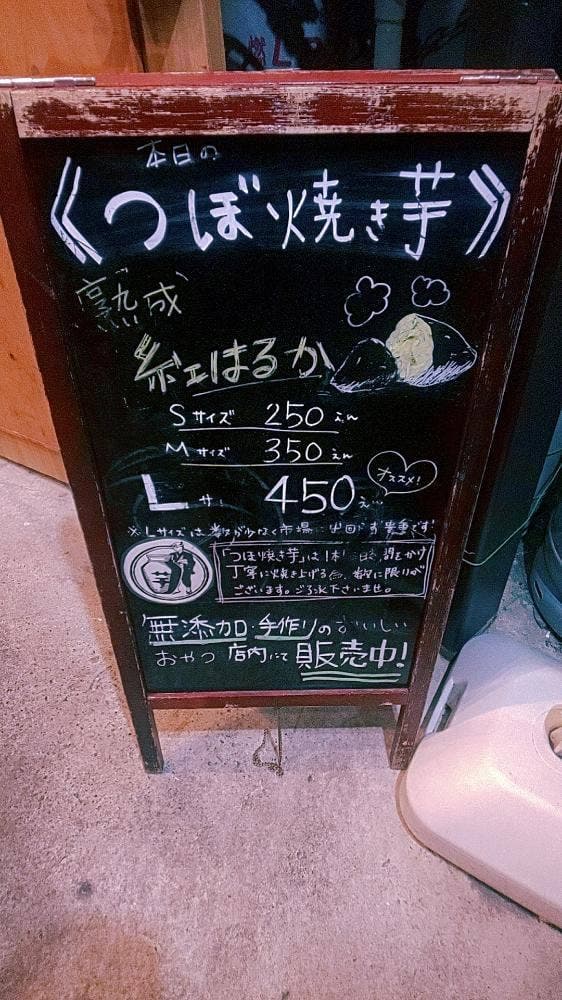 本日の
《つぼ焼き芋》
熟成
紅はるか
Sサイズ 250えん
Mサイズ 350えん
L サ 450え
オススメ!
※Lサイズは数が少なく市場に出回らず貴重です
「つぼ焼き芋」は1本1本 時間をかけ
丁寧に焼き上げる為、数に限りが
ございます。ご了承下さいませ。
芋
無添加・手作りのおいしい
おやつ 店内にて販売中!